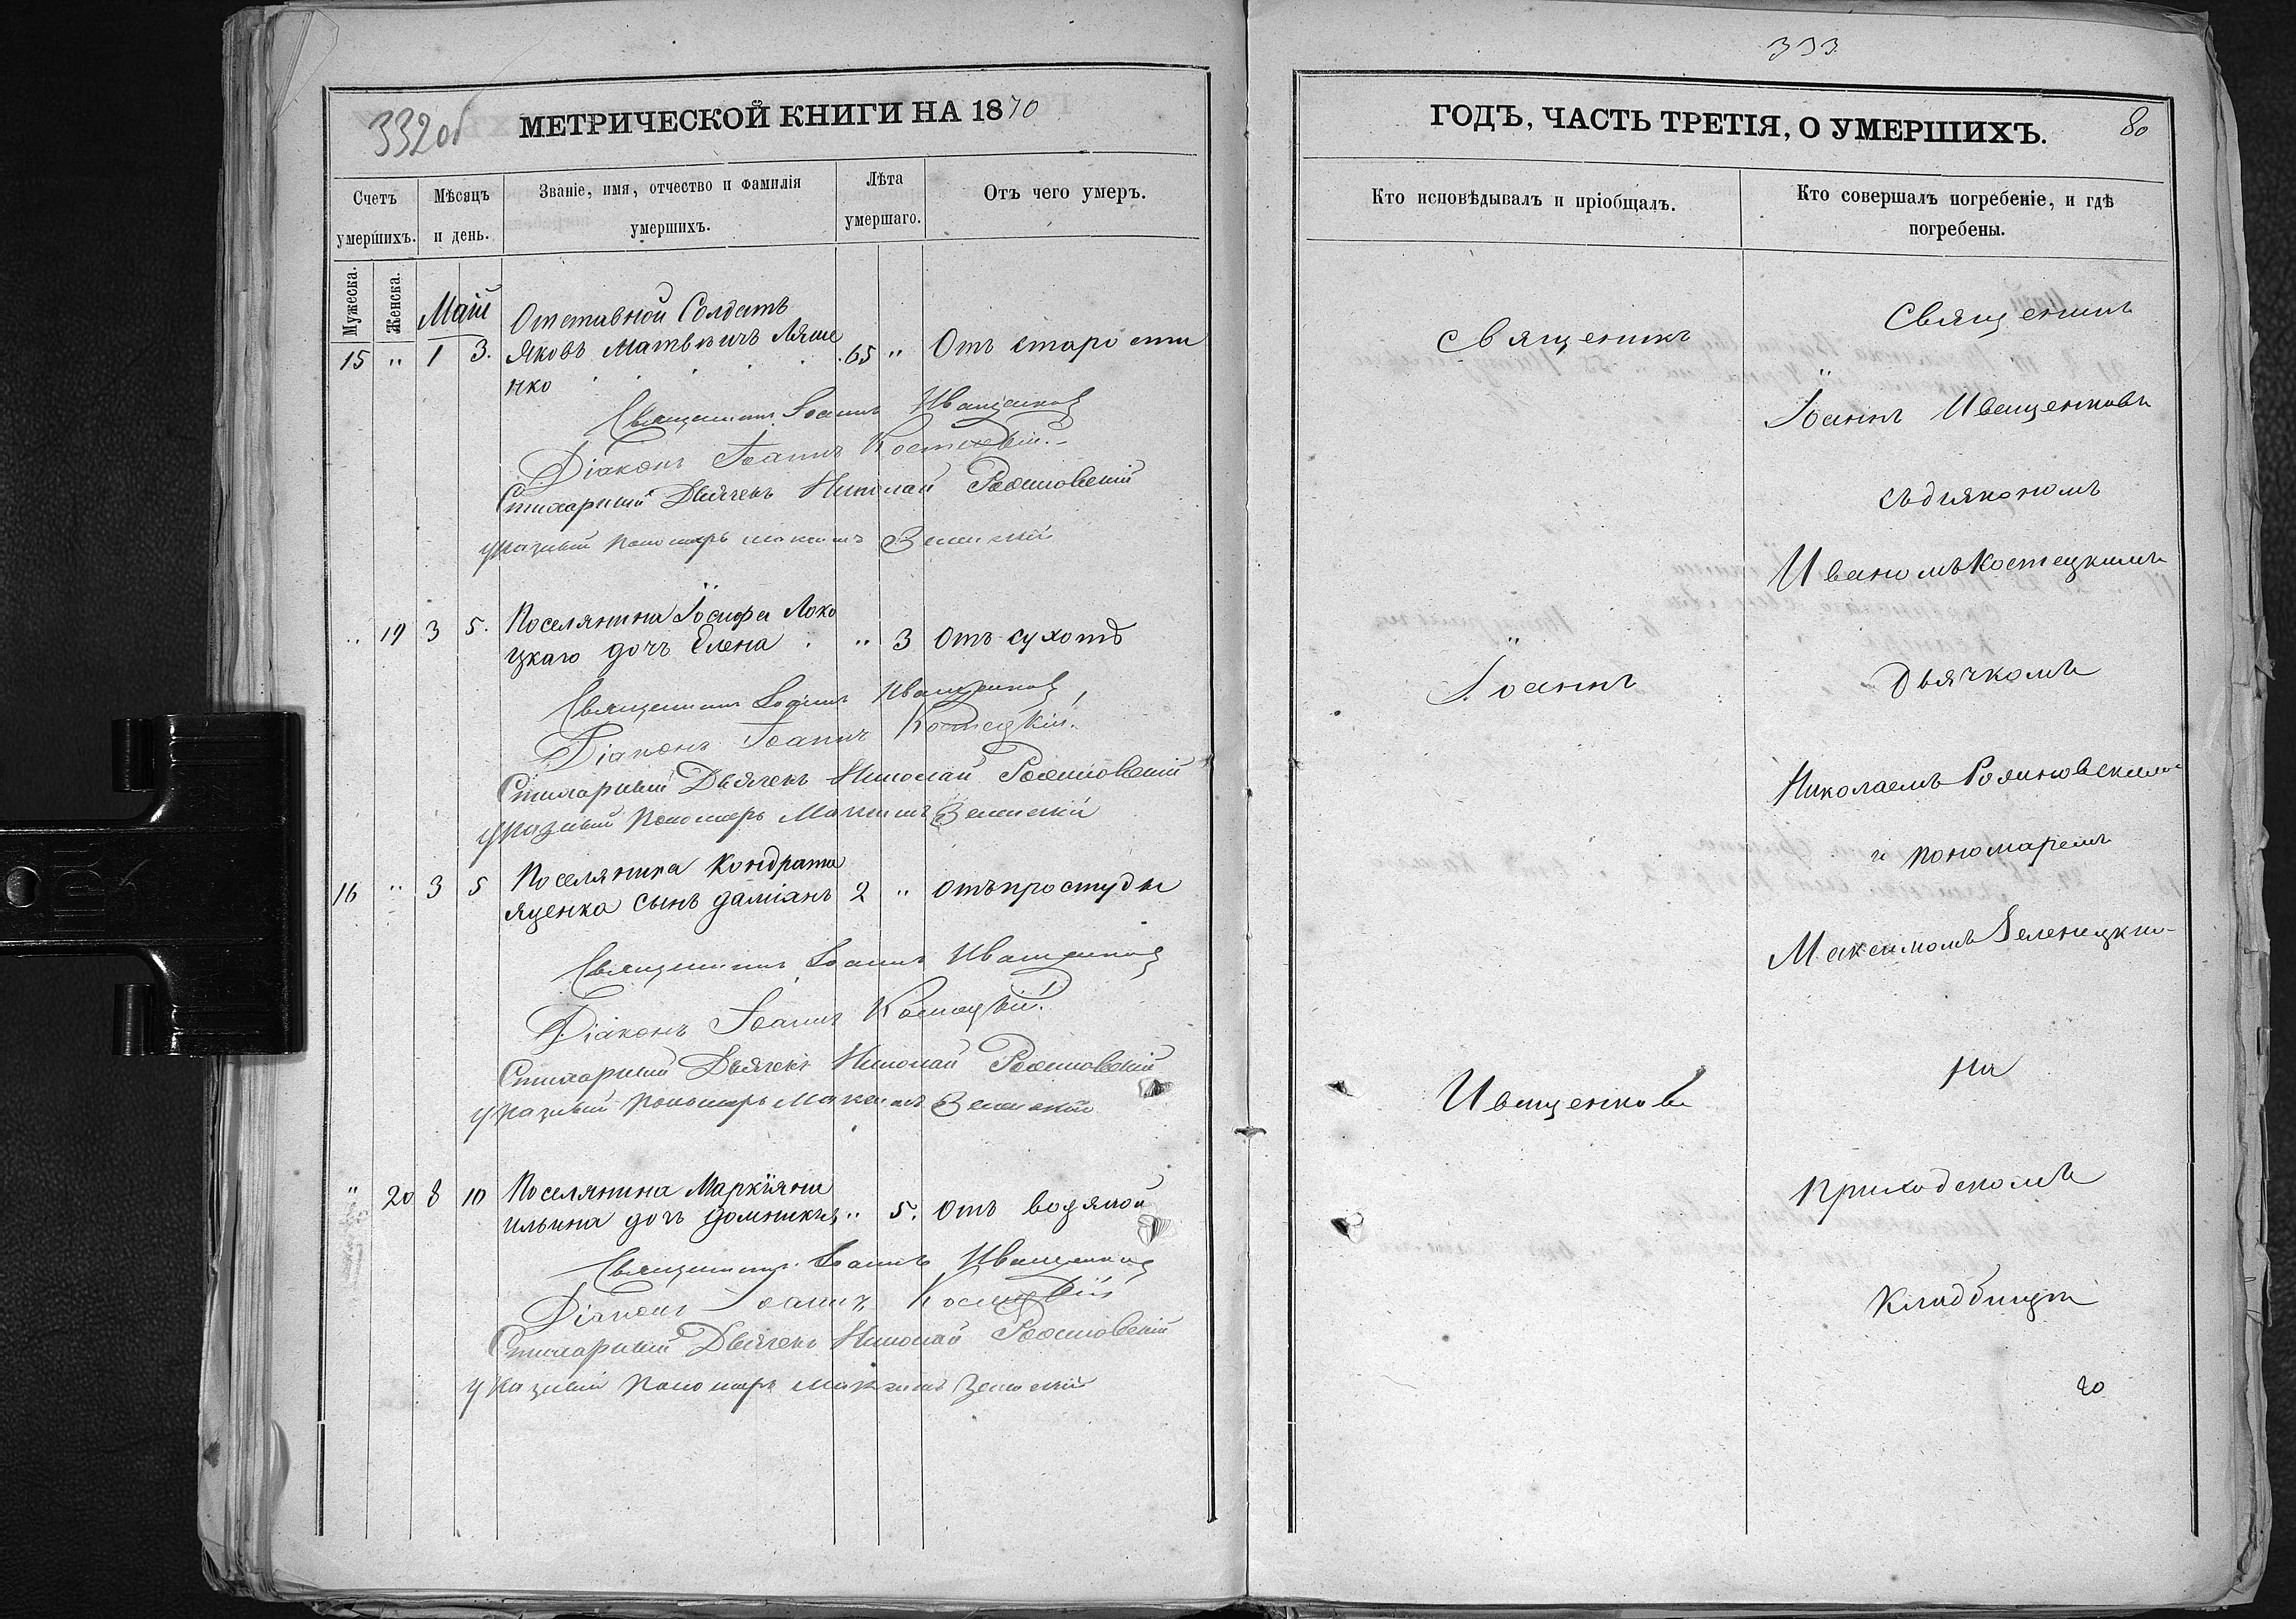 332об
МЕТРИЧЕСКОЙ КНИГИ НА 1870
Счетъ умершихъ.
Мѣсяцъ и день.
Званіе, имя, отчество и фамилія умершихъ.
Лѣта умершаго.
Отъ чего умеръ.
Мужеска.
Женска.
Май
Отставной Солдатъ
15 " 1 3. Яковъ Матвѣичъ Ляше 65 " Отъ старости
нко
Священникъ Іоаннъ Иващенковъ
Діаконъ Іоаннъ Костецкій.
Стихарный Дьячекъ Николай
указный пономарь Максимъ
Поселянина Іосифа Локо
" 19 3 5. цкаго дочъ Елена " 3 Отъ сухотъ
Священникъ Іоаннъ Иващенковъ
Діаконъ Іоаннъ Костецкій.
Стихарный Дьячекъ Николай
указный пономарь Максимъ
Поселянина Кондрата
16 " 3 5 Яценка сынъ Даміанъ 2 " отъ простуды
Священникъ Іоаннъ Иващенковъ
Діаконъ Іоаннъ Костецкій.
Стихарный Дьячекъ Николай
указный пономарь Максимъ
Поселянина Маркіяна
" 20 8 10 Ильина дочъ Домникія " 5. отъ водяной
Священникъ Іоаннъ Иващенковъ
Діаконъ Іоаннъ Костецкій
Стихарный Дьячекъ Николай
указный пономарь Максимъ
333
ГОДЪ, ЧАСТЬ ТРЕТІЯ, О УМЕРШИХЪ.
80
Кто исповѣдывалъ и пріобщалъ.
Кто совершалъ погребеніе, и гдѣ погребены.
Священикъ
Іоаннъ
Иващенковъ
Священикъ
Іоаннъ Иващенковъ
съ діякономъ
Иваномъ Костецкимъ
Дьячкомъ
Николаемъ
и пономаремъ
Максимомъ
на
приходскомъ
кладбищи
20